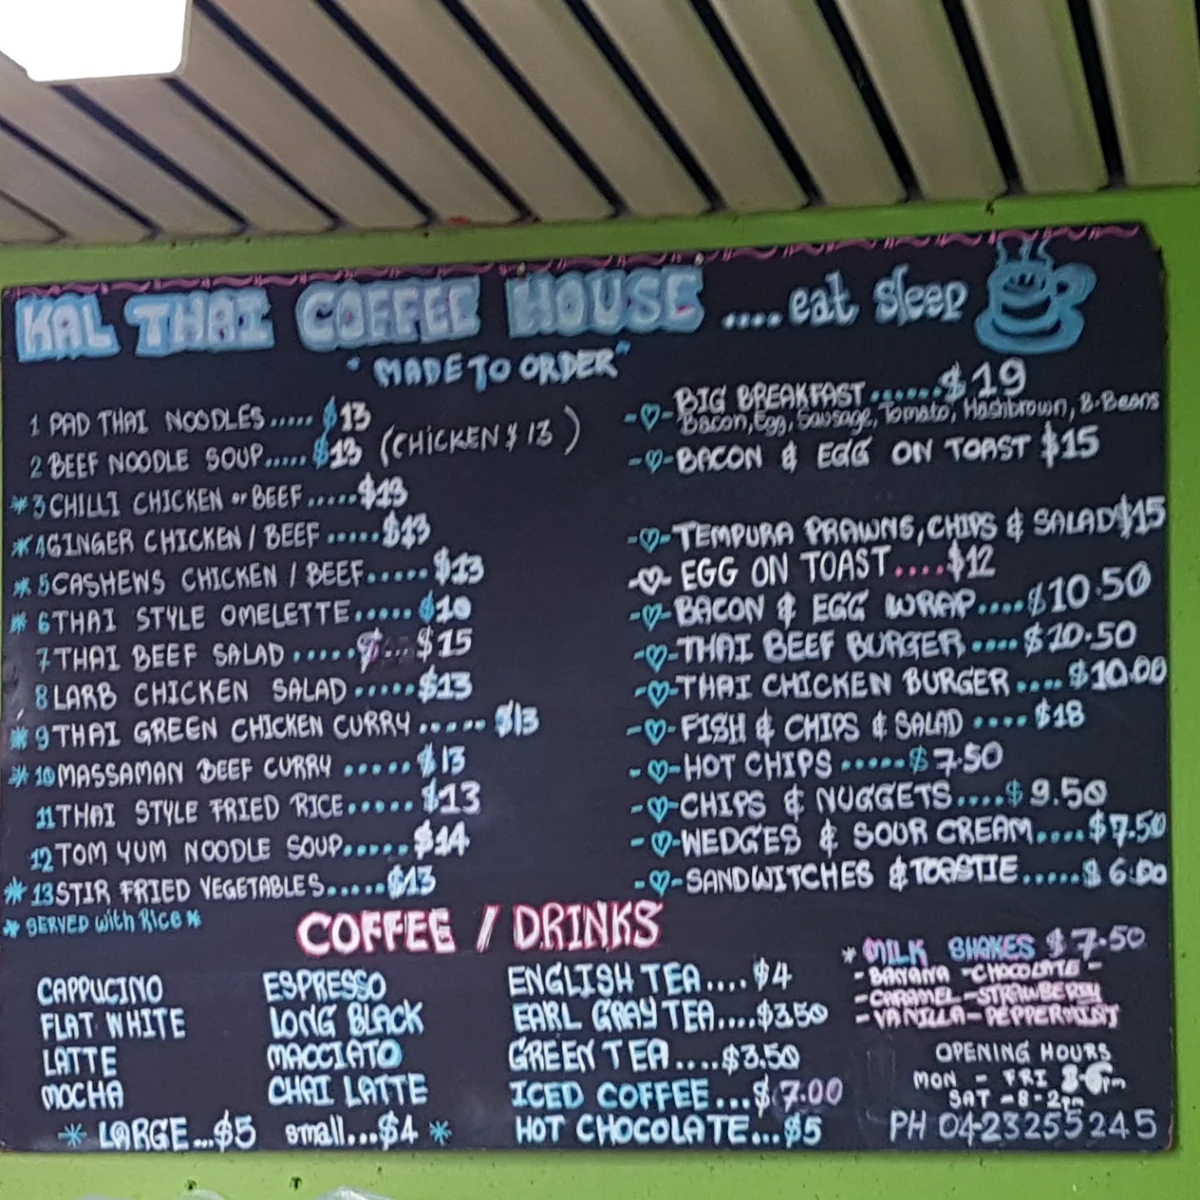 KAL THAI COFFEE HOUSE ....eat sleep
"MADE TO ORDER"
1 PAD THAI NOODLES..... $13
2 BEEF NOODLE SOUP..... $13 (CHICKEN $13)
*3 CHILLI CHICKEN or BEEF.....$13
*4 GINGER CHICKEN / BEEF.....$13
*5 CASHEWS CHICKEN / BEEF.....$13
*6 THAI STYLE OMELETTE.....$10
7 THAI BEEF SALAD.....$...$15
8 LARB CHICKEN SALAD.....$13
*9 THAI GREEN CHICKEN CURRY.....$13
*10 MASSAMAN BEEF CURRY.....$13
11 THAI STYLE FRIED RICE.....$13
12 TOM YUM NOODLE SOUP.....$14
*13 STIR FRIED VEGETABLES.....$13
* SERVED with Rice *
-♡- BIG BREAKFAST......$19
Bacon, Egg, Sausage, Tomato, Hashbrown, B-Beans
-♡- BACON & EGG ON TOAST $15
-♡- TEMPURA PRAWNS, CHIPS & SALAD $15
-♡- EGG ON TOAST....$12
-♡- BACON & EGG WRAP....$10.50
-♡- THAI BEEF BURGER....$10.50
-♡- THAI CHICKEN BURGER....$10.00
-♡- FISH & CHIPS & SALAD....$18
-♡- HOT CHIPS.....$7.50
-♡- CHIPS & NUGGETS....$9.50
-♡- WEDGES & SOUR CREAM....$7.50
-♡- SANDWITCHES & TOASTIE.....$6.00
COFFEE / DRINKS
CAPPUCINO
FLAT WHITE
LATTE
MOCHA
ESPRESSO
LONG BLACK
MACCIATO
CHAI LATTE
* LARGE...$5 small...$4 *
ENGLISH TEA....$4
EARL GRAY TEA....$3.50
GREEN TEA....$3.50
ICED COFFEE...$7.00
HOT CHOCOLATE...$5
* MILK SHAKES $7.50
- BANANA - CHOCOLATE -
- CARAMEL - STRAWBERRY
- VANILLA - PEPPERMINT
OPENING HOURS
MON - FRI
SAT - 8 - 2pm
PH 0423255245